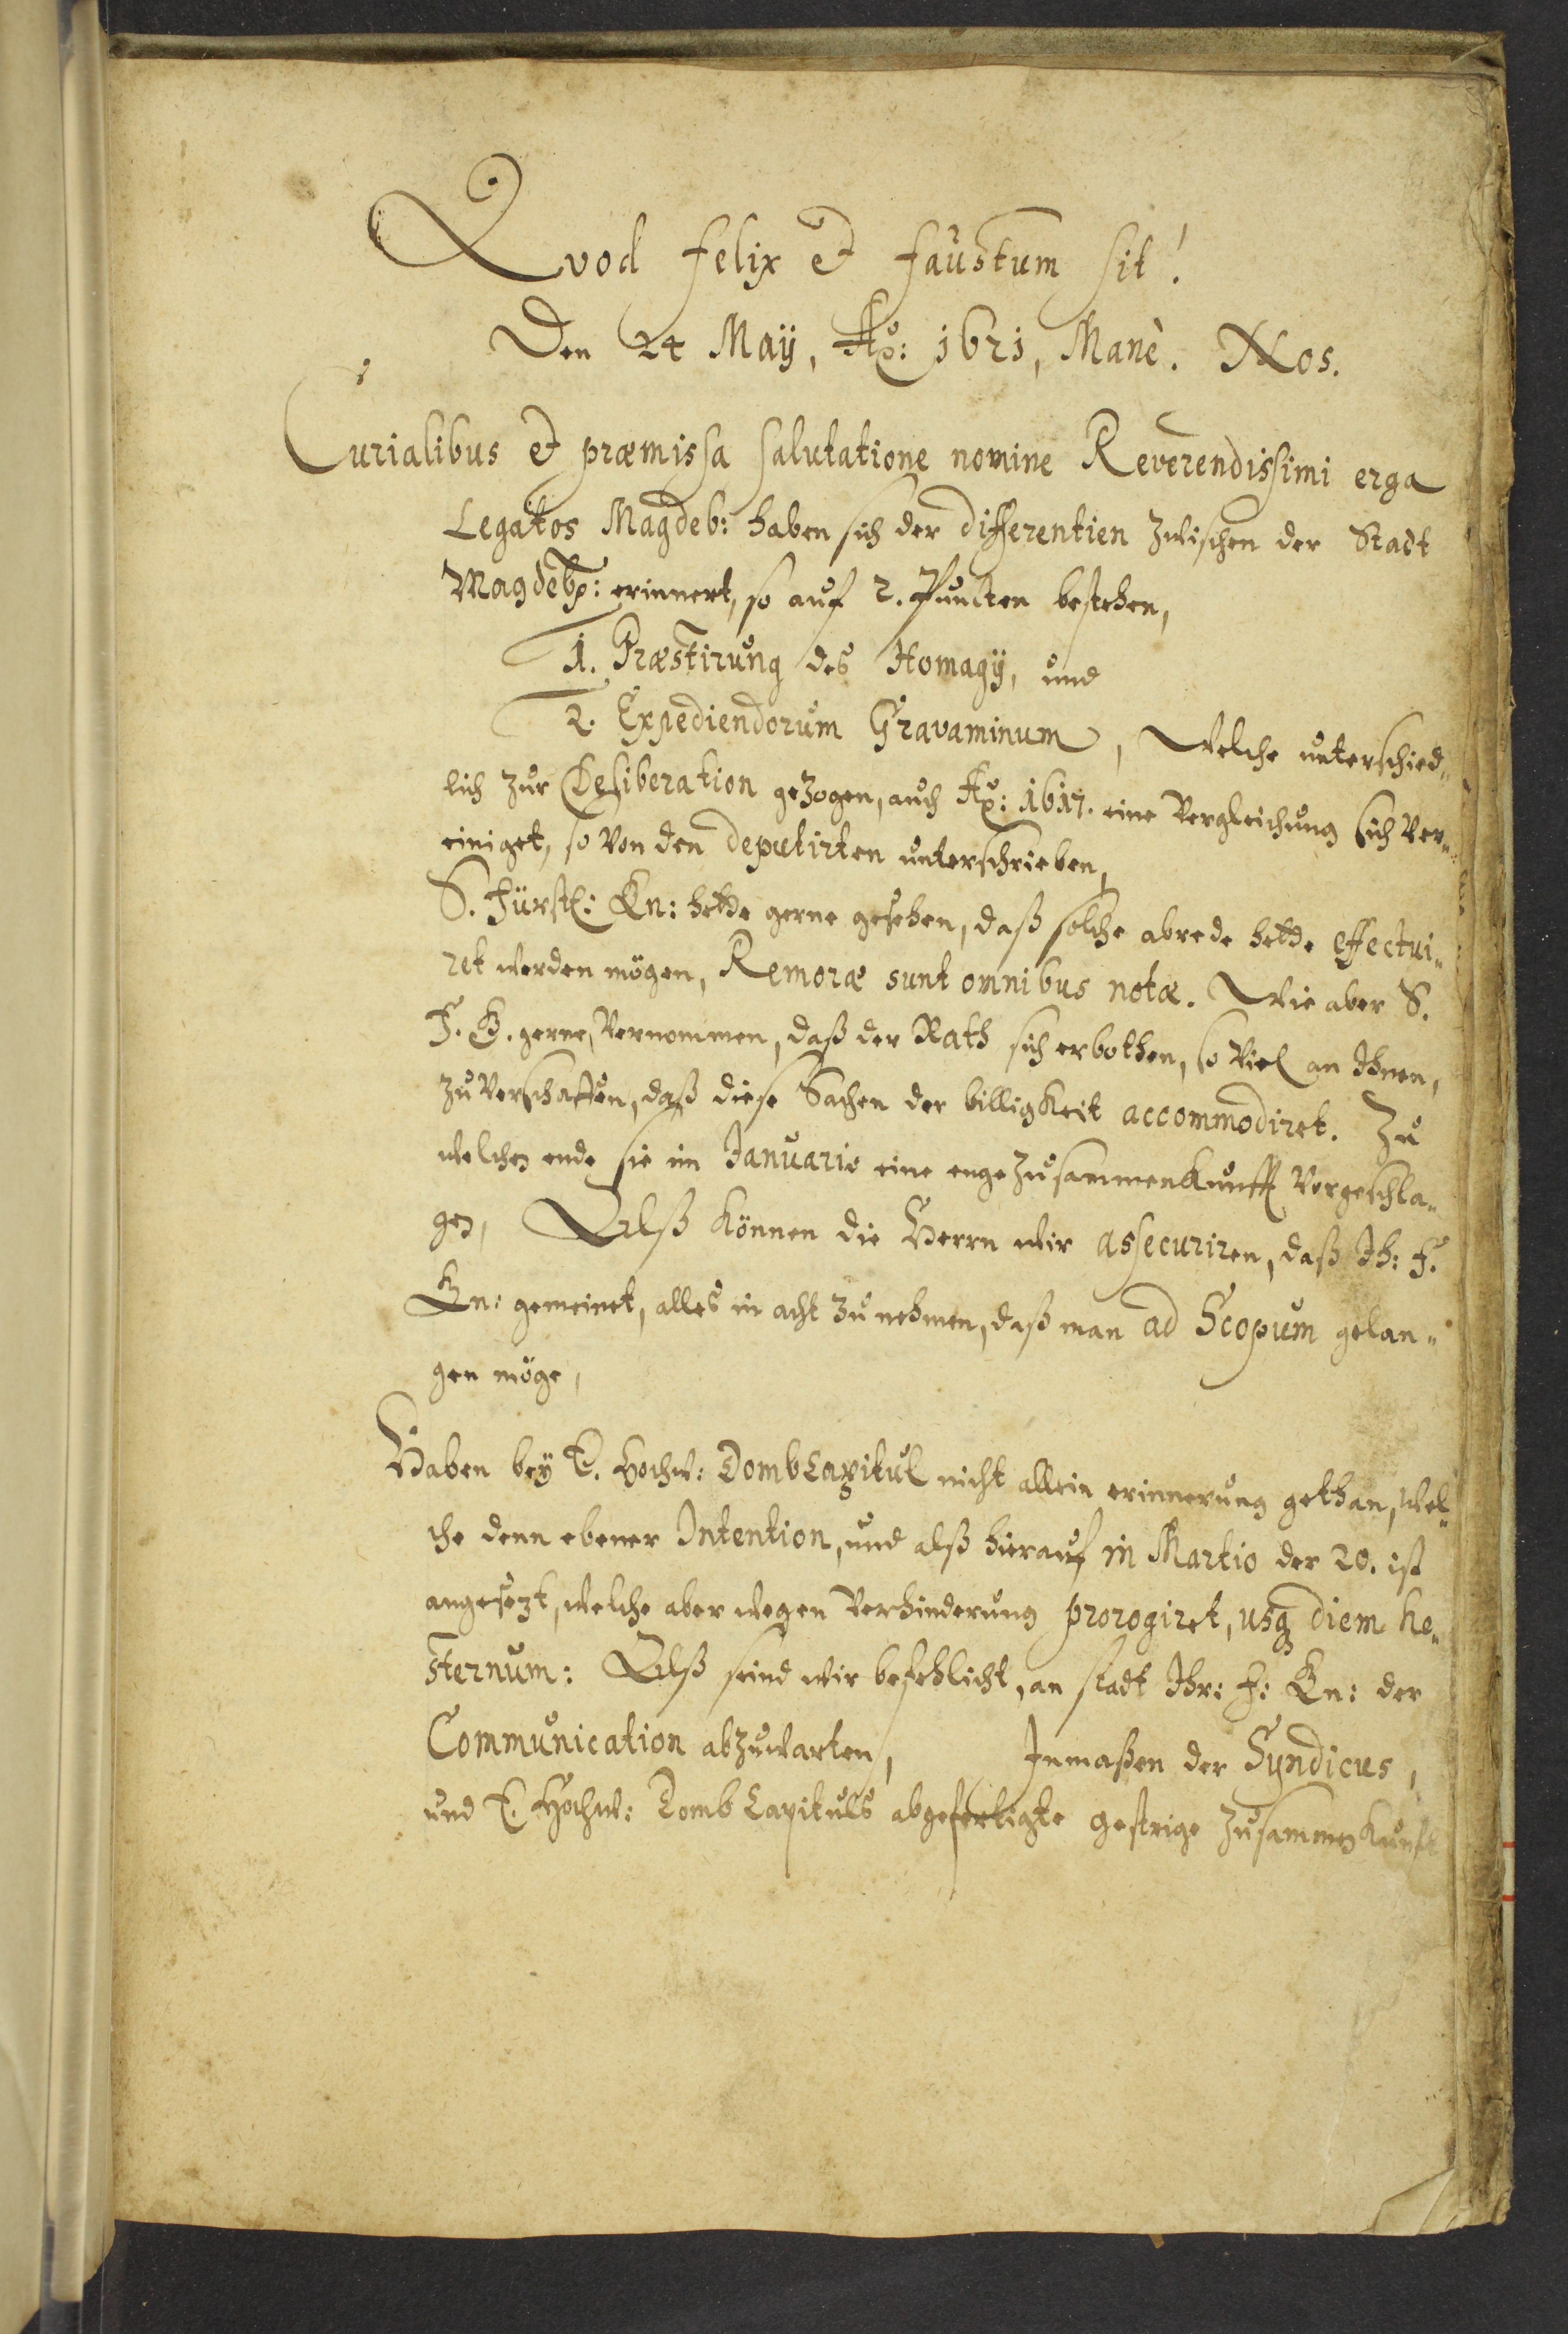 Quod felix et faustum sit!
Den 24 Maÿ, Ao: 1621, Manè. Nos.
Curialibus et præmissa salutatione nomine Reverendissimi erga
Legatos Magdeb: haben sich der differentien zwischen der Stadt
Magdeb: erinnert, so auf 2. Puncten bestehen,
1. Præstirung des Homagÿ, und
2. Expediendorum Gravaminum, Welche unterschied„
lich zur Deliberation gezogen, auch Ao: 1617. eine Vergleichung sich ver„
einiget, so von den deputirten unterschrieben,
S. Fürstl: Gn: hette gerne gesehen, daß solche abrede hette effectui„
ret werden mögen, Remoræ sunt omnibus notæ. Wie aber S.
F. G. gerne vernommen, daß der Rath sich erbothen, so viel an Ihnen,
zu verschaffen, daß diese Sachen der billigkeit accommodiret. Zu
welchen ende sie im Januario eine enge Zusammenkunfft vorgeschla„
gen, Alß können die Herrn wir assecuriren, daß Ih: F.
Gn: gemeinet, alles in acht zu nehmen, daß man ad Scopum gelan„
gen möge,
Haben bey E. Hochw: DombCapitul nicht allein erinnerung gethan, wel„
che denn ebener Intention, und alß hierauf in Martio der 20. ist
angesezt, welche aber wegen Verhinderung prorogiret, usq diem he„
sternum: Alß seind wir befehlicht, an stadt Ihr: F: Gn: der
Communication abzuwarten, Inmaßen der Syndicus,
und E. Hochw: Domb Capituls abgefertigte gestrige Zusammenkunft